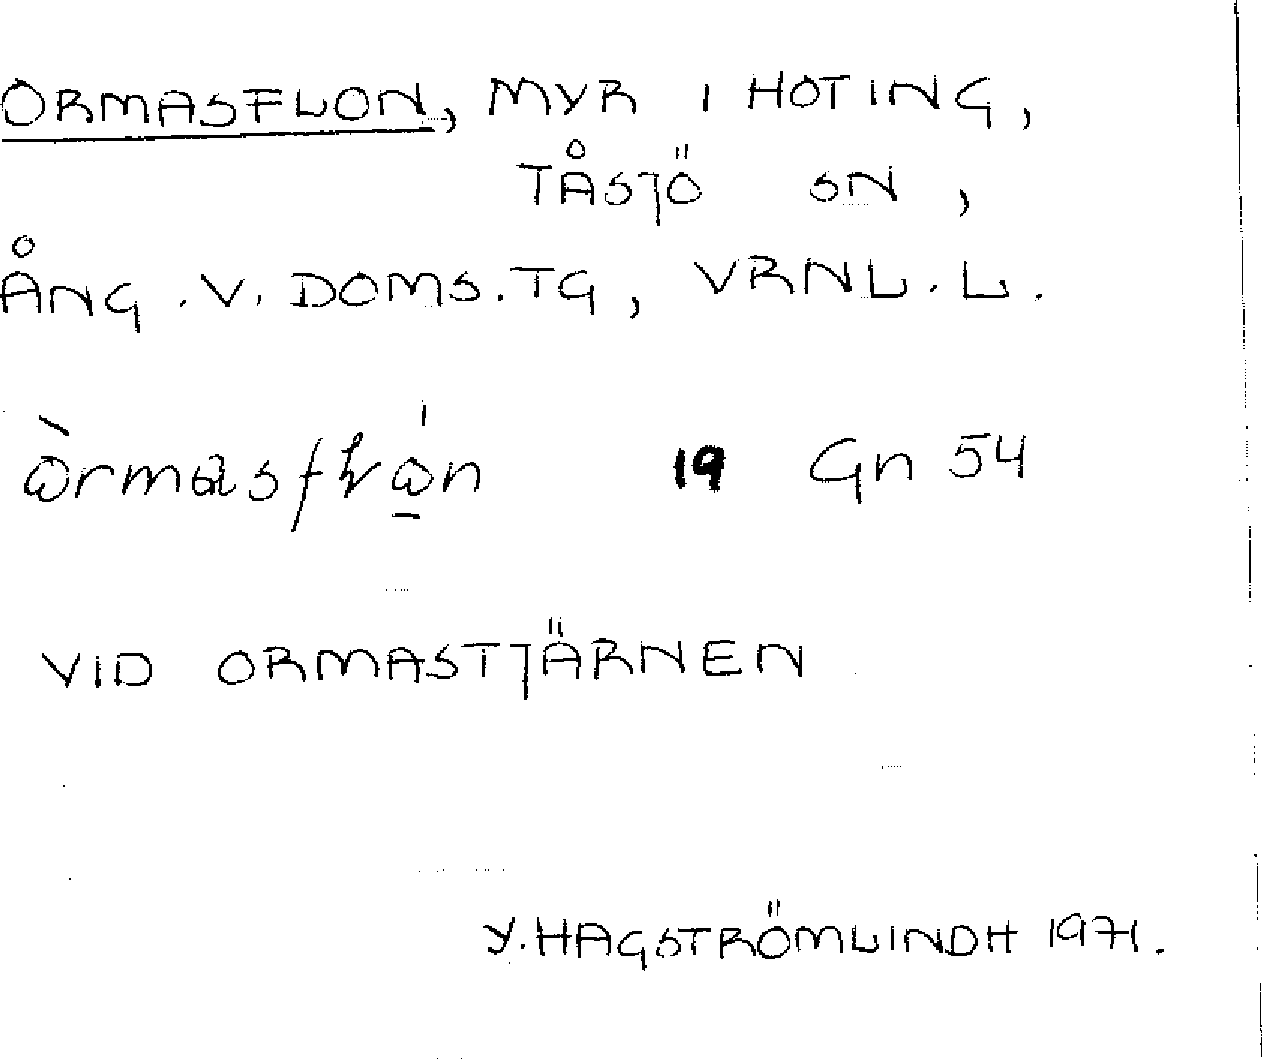 ORMASFLON, MYR I HOTING,
TÅSJÖ SN,
ÅNG. V. DOMS. TG, VRNL. L.
19 Gn 54
VID ORMASTJÄRNEN
Y. HAGSTRÖMLINDH 1971.